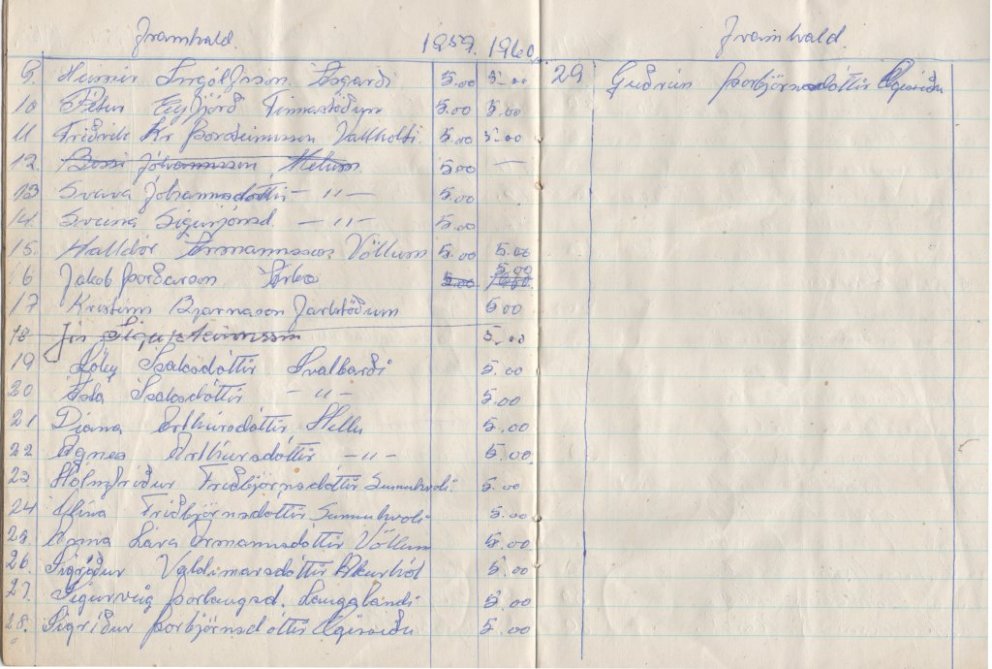 Framhald. 1959. 1960
9. Heimir Ingólfsson Ásgarði 5.00 5.00
10 Pétur Eyfjörð Finnastöðum 5.00 5.00
11 Friðrik Kr Þorsteinsson Vallholti 5.00 5.00
12. Bessi Jóhannsson Melum 5.00 —
13 Svava Jóhannsdóttir — " — 5.00
14. Svana Sigurjónsd. — " — 5.00
15. Halldór Ármannsson Völlum 5.00 5.00
6 Jakob Þórðarson Árbæ 5.00 5.00
17 Kristinn Bjarnason Jarlstöðum 5.00
18 Jón 5.00
19 Sóley Ísaksdóttir Svalbarði 5.00
20 Ísaksdóttir — " — 5.00
21 Díana Arthúrsdóttir Hellu 5.00
22 Agnes Arthúrsdóttir — " — 5.00
23 Hólmfríður Friðbjörnsdóttir Sunnuhvoli 5.00
24 Friðbjörnsdóttir Sunnuhvoli 5.00
25. Anna Lára Ármannsdóttir Völlum 5.00
26. Sigríður Valdimarsdóttir Akurhól 5.00
27. Sigurveig Þorlaugsd. Laugalandi 5.00
28. Sigríður Þorbjörnsdóttir Ægissíðu 5.00
Framhald.
29 Guðrún Þorbjörnsdóttir Ægissíðu